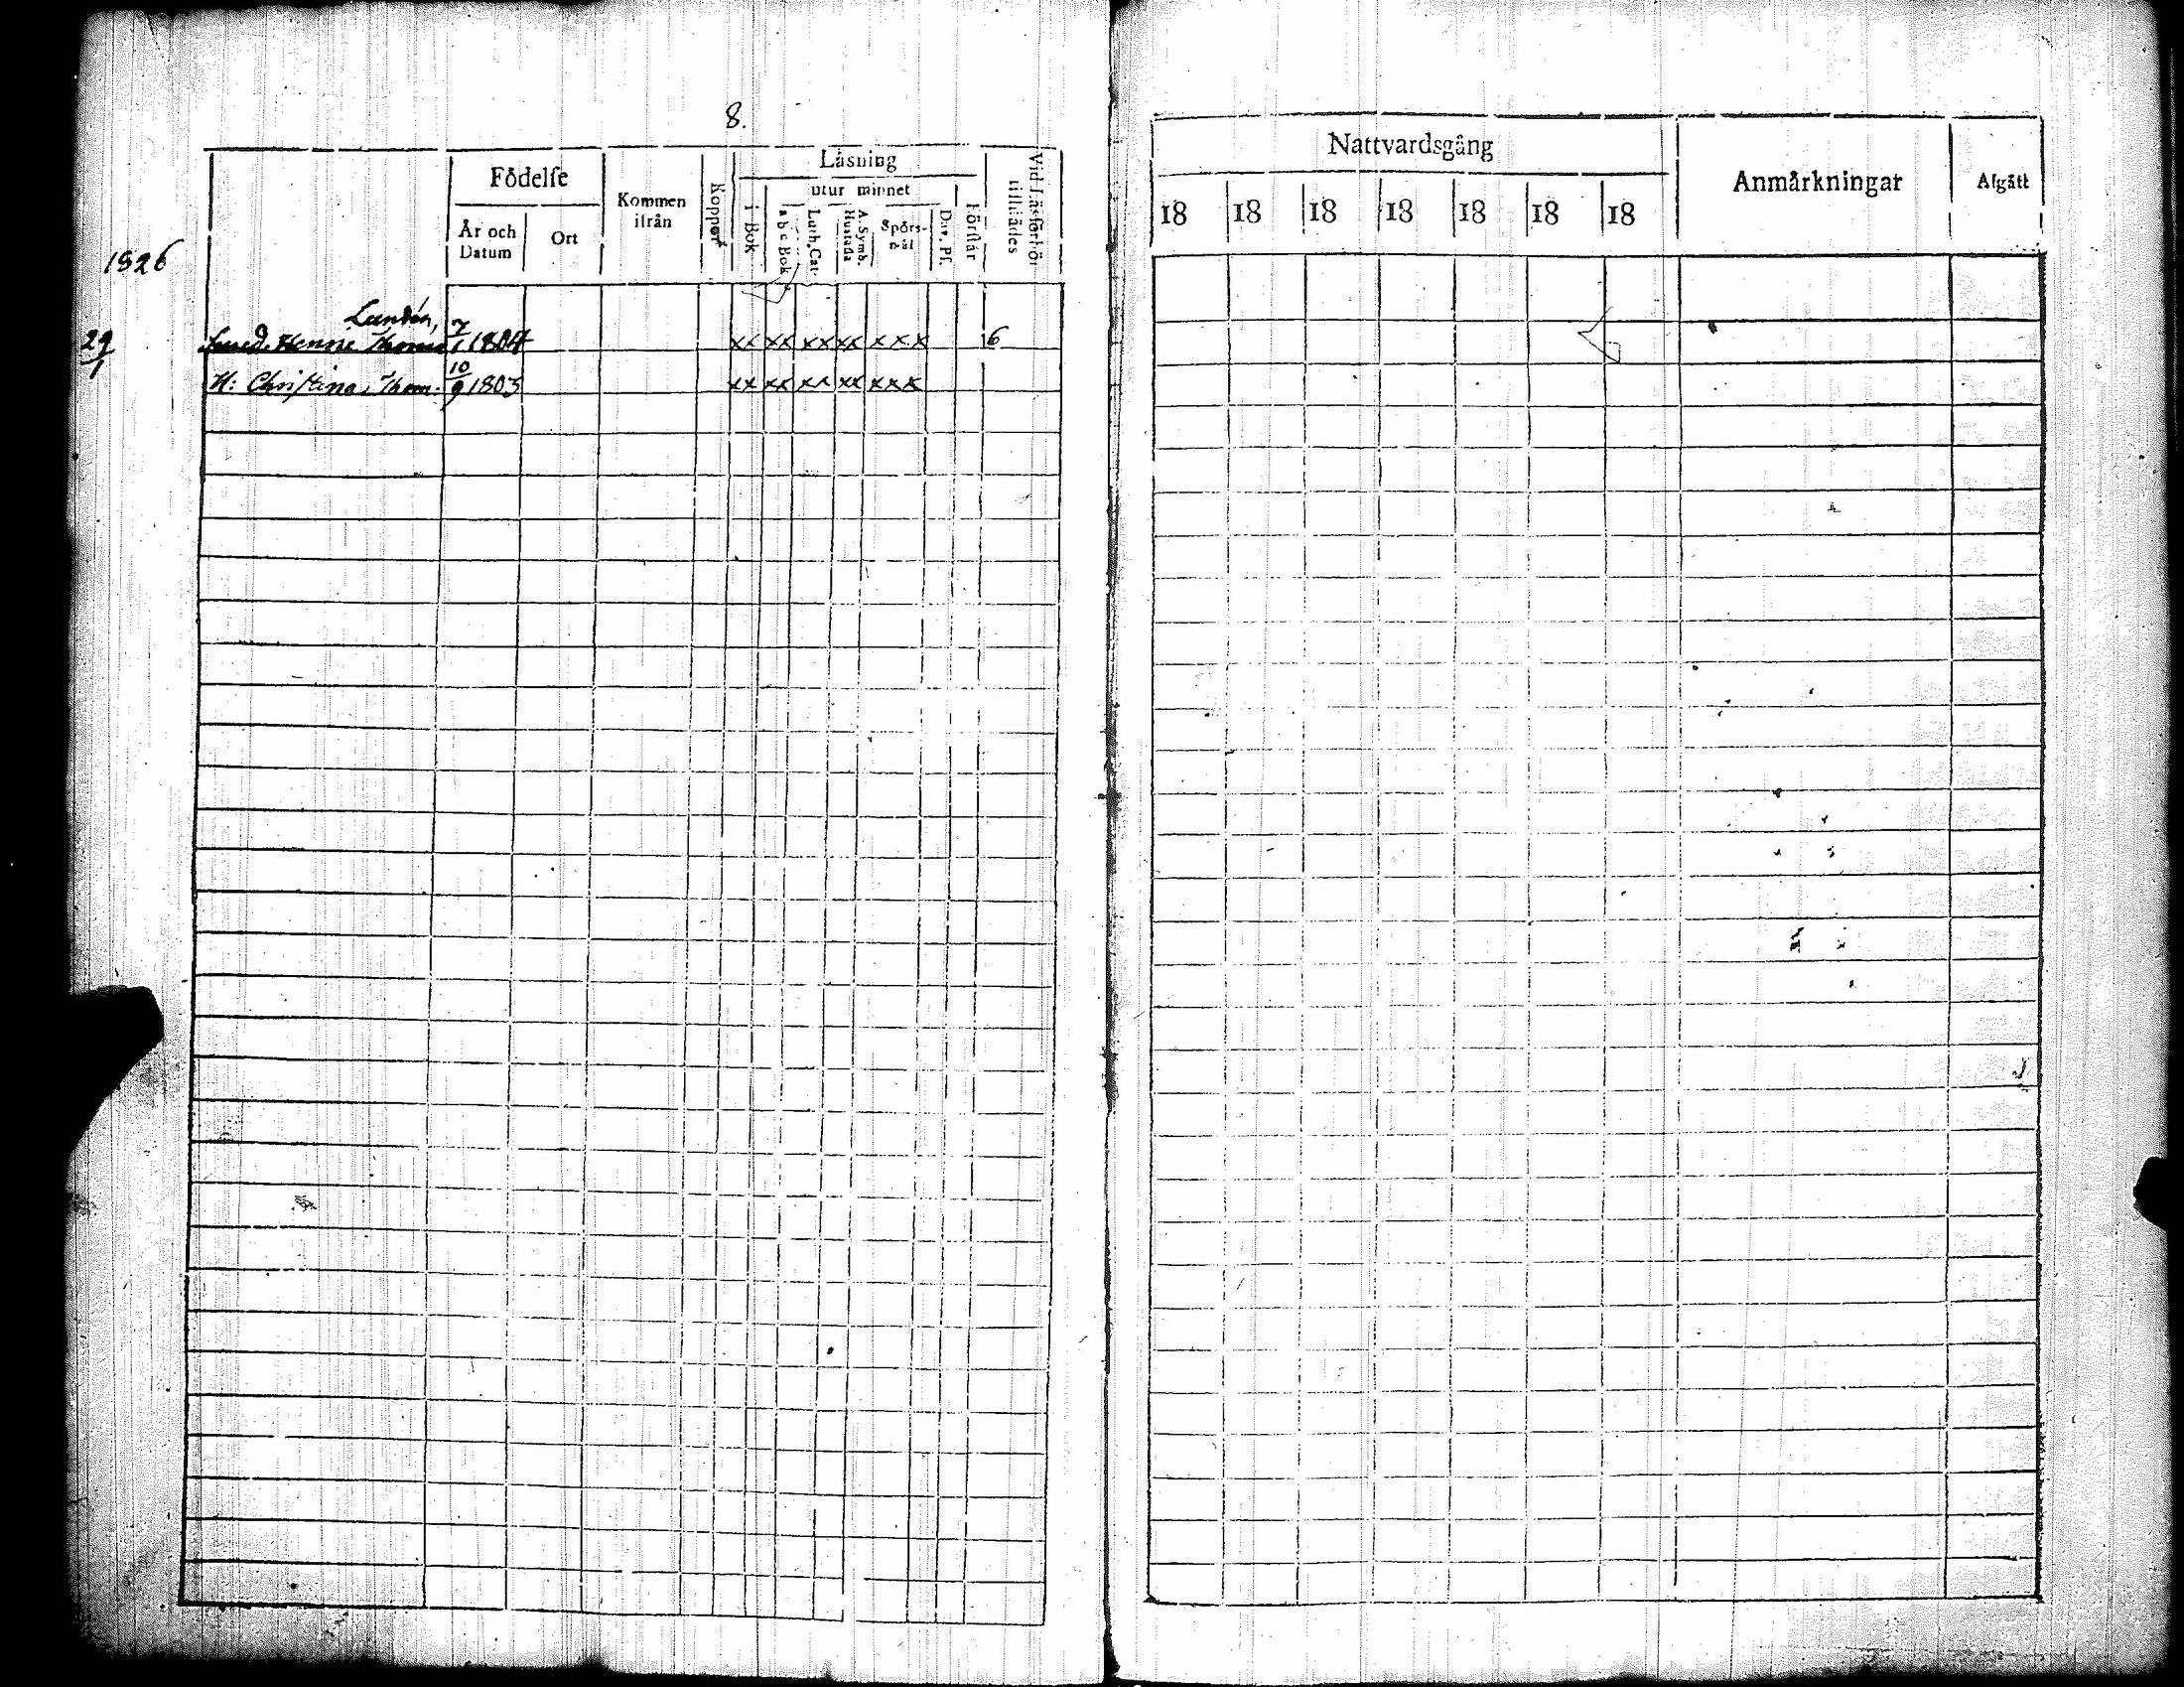 8.
Födelse
År och Datum
Ort
Kommen ifrån
Koppor
Läsning
i Bok
utur minnet
a b c Bok
Luth. Cat.
A. Symb. Hustafla
Spörsmål
Dav. Ps.
Förstår
Vid Läsförhör tillstädes
Nattvardsgång
18 18 18 18 18 18 18
Anmärkningar
Afgått
1826
Lundén,
29/1 Smed. Henric Thomas 7/1 1804 xx xx xx xx xxx 6
H: Christina Thom: 10/9 1803 xx xx xx xx xxx